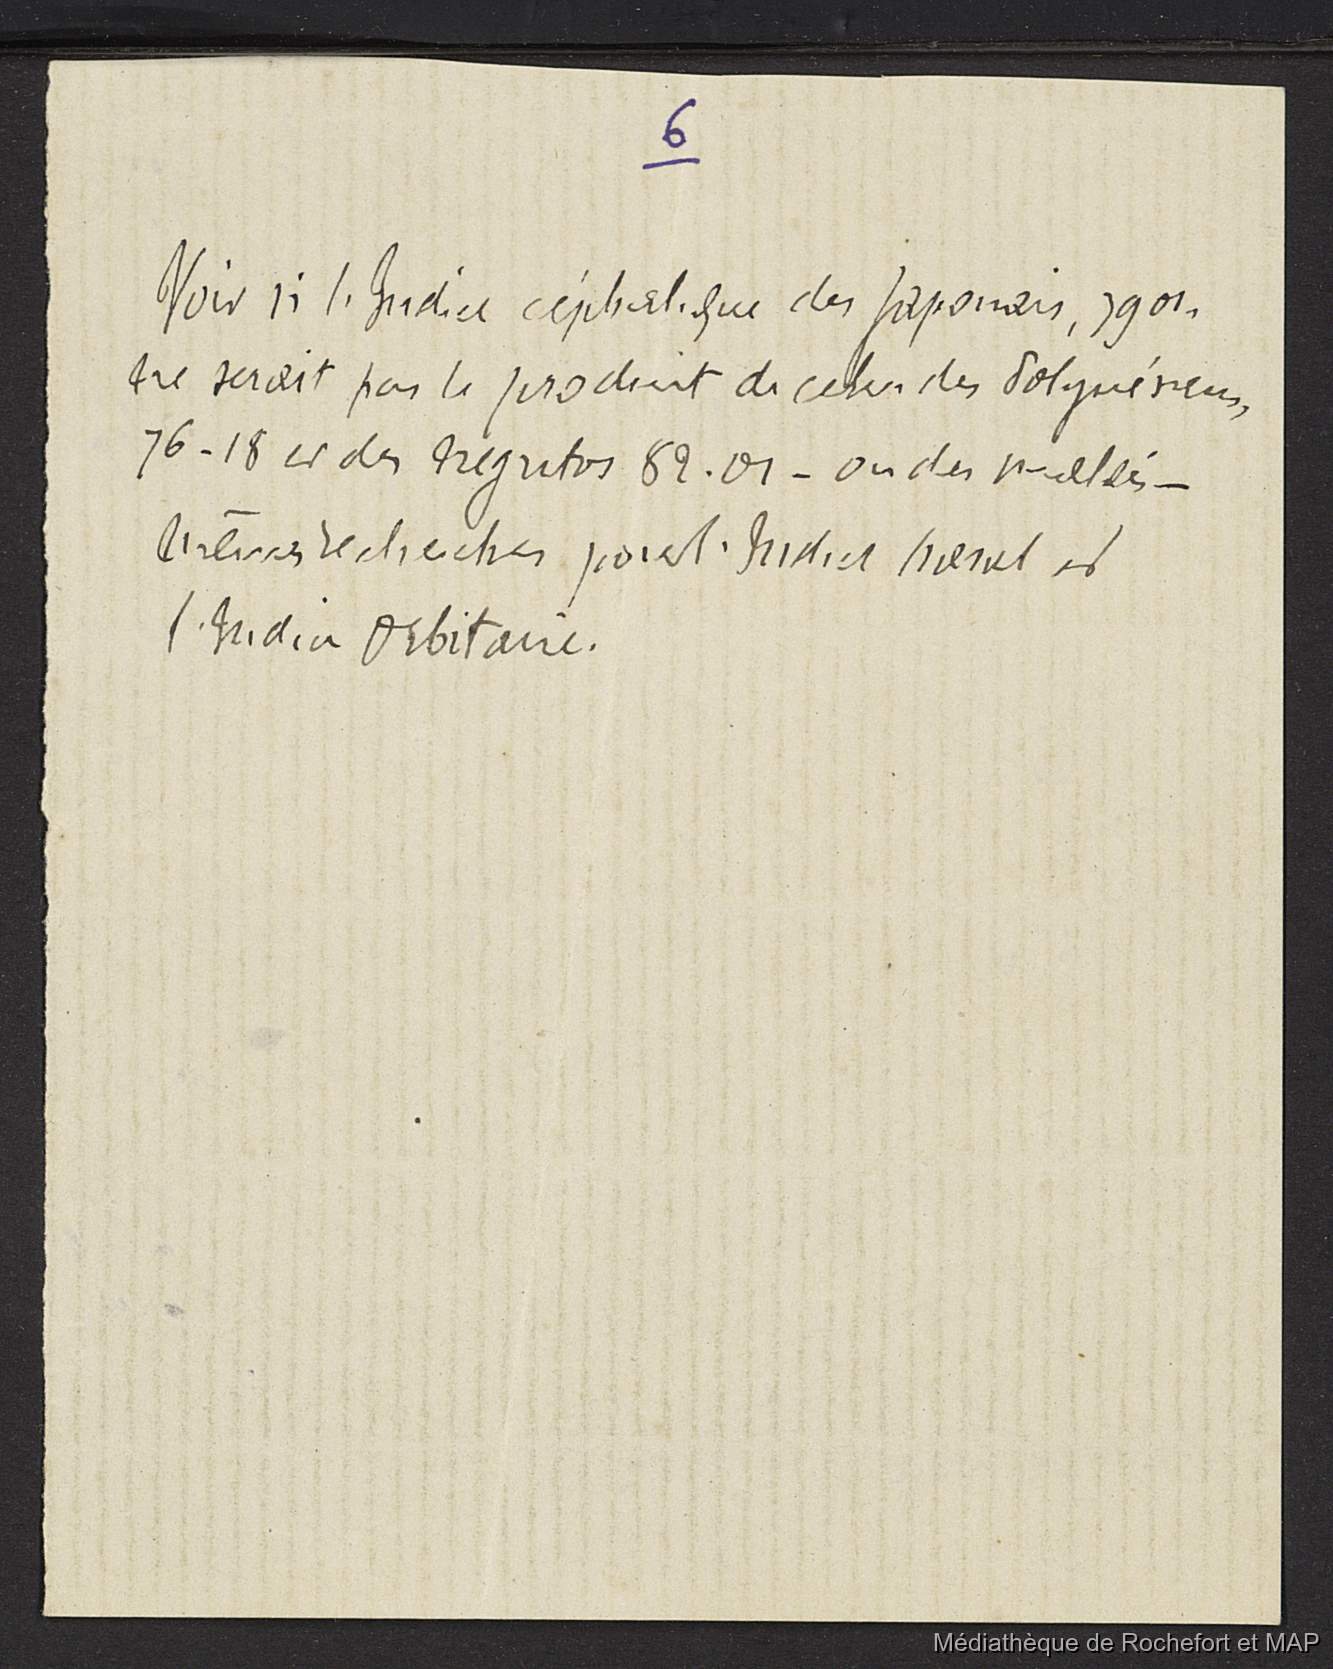 6
Voir si l'Indice céphalique des Japonais, 7901.
ne serait pas le produit de celui des Polynésiens,
76-18 et des Négritos 82.01 - ou des
mêmes recherches pour l'Indice nasal et
l'Indice Orbitaire.
Médiathèque de Rochefort et MAP